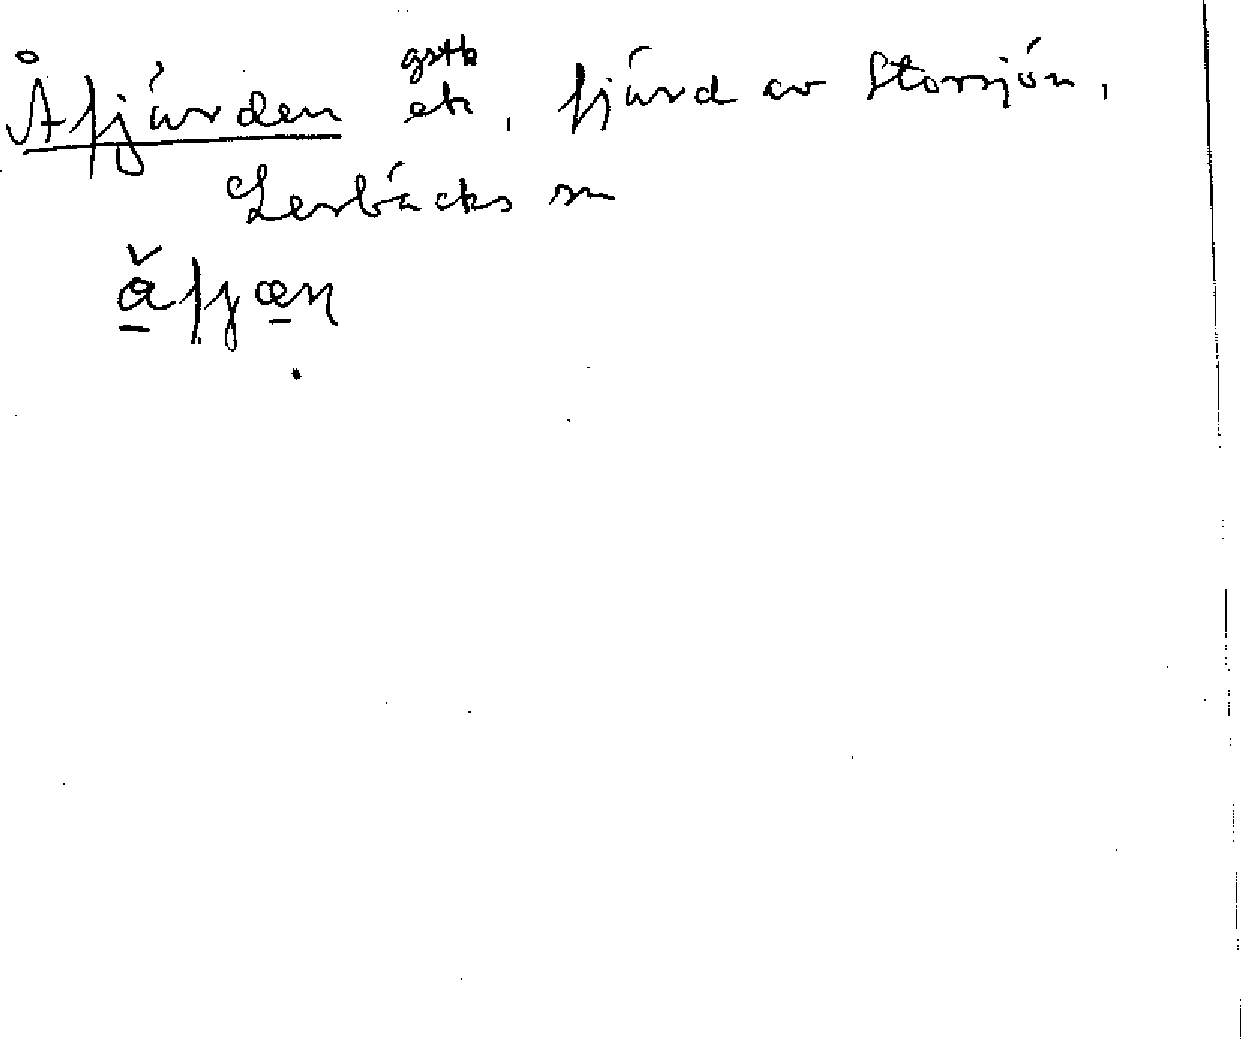 Åfjärden gstb ek, fjärd av Storsjön,
Lerbäcks sn
åfjæn